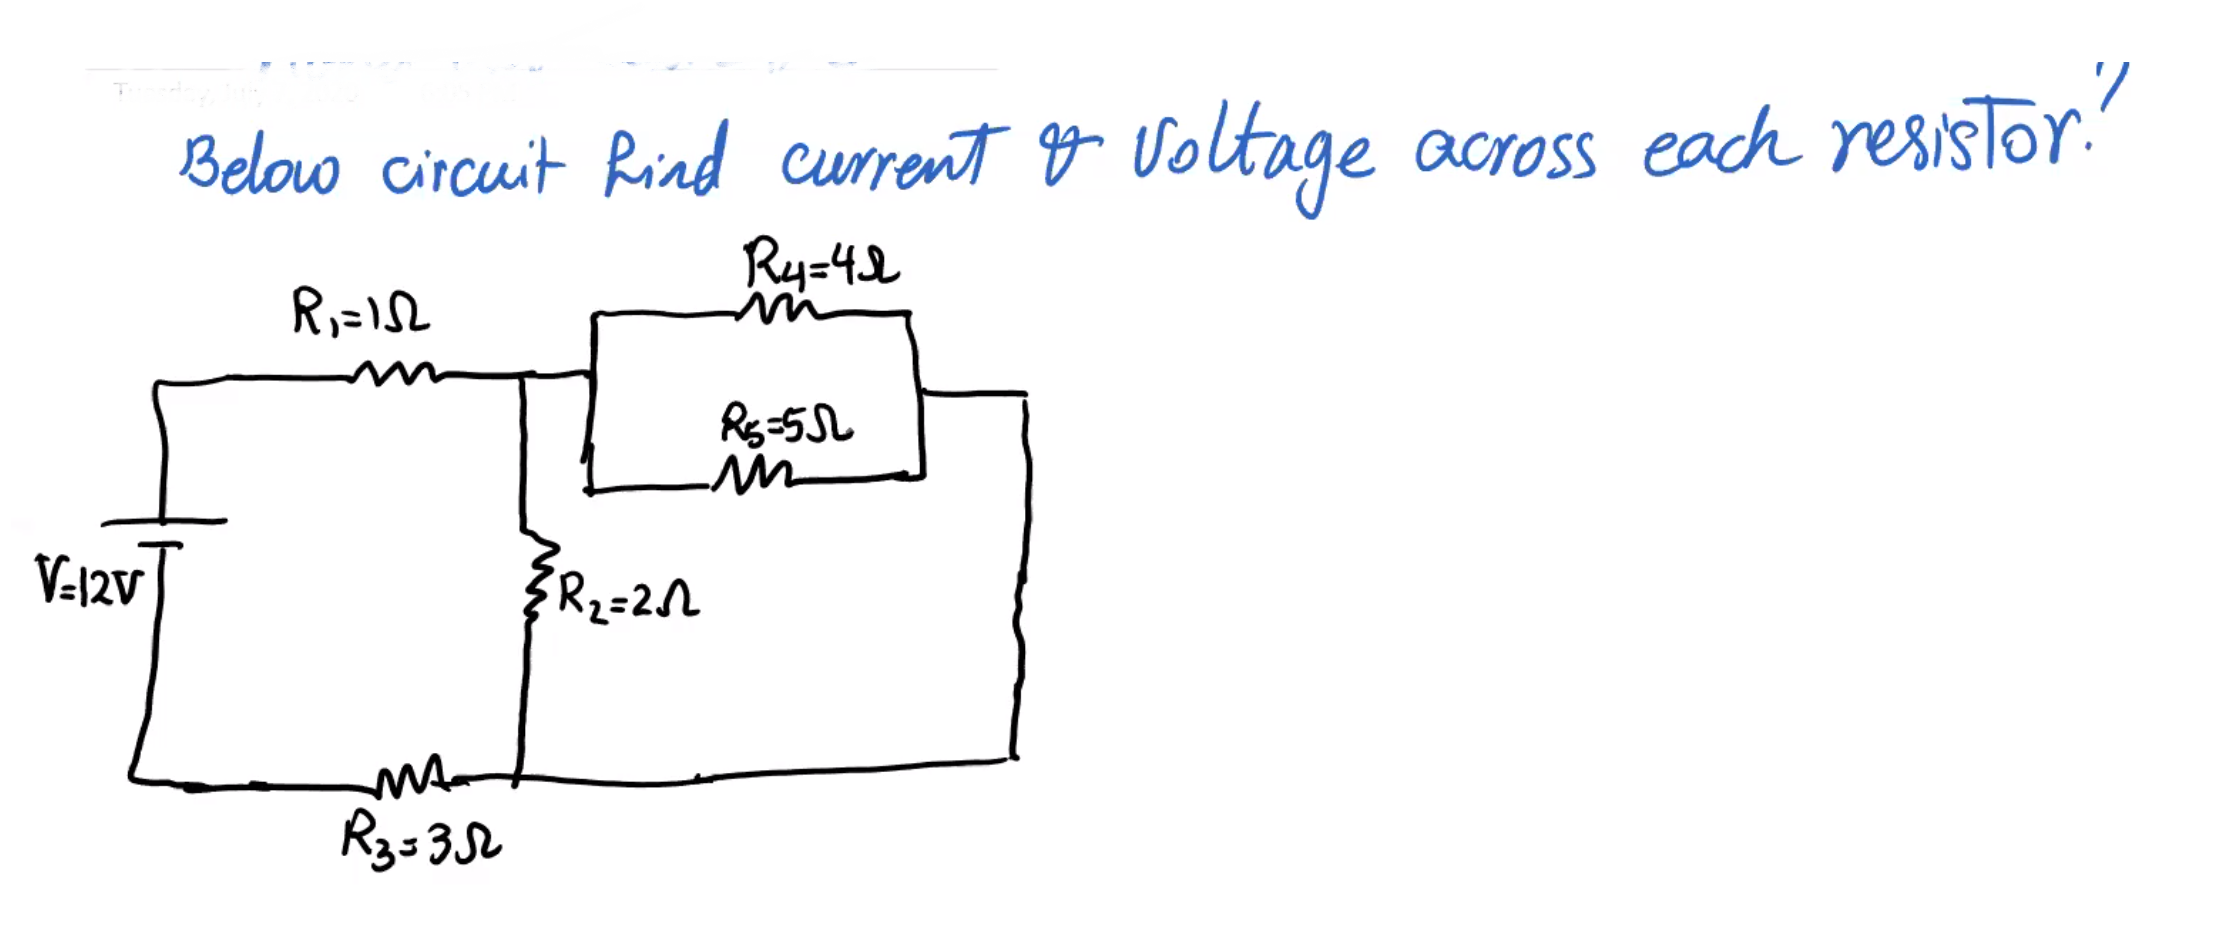 Below circuit find current & Voltage across each resistor?
R4=4Ω
R1=1Ω
R5=5Ω
V=12V
R2=2Ω
R3=3Ω